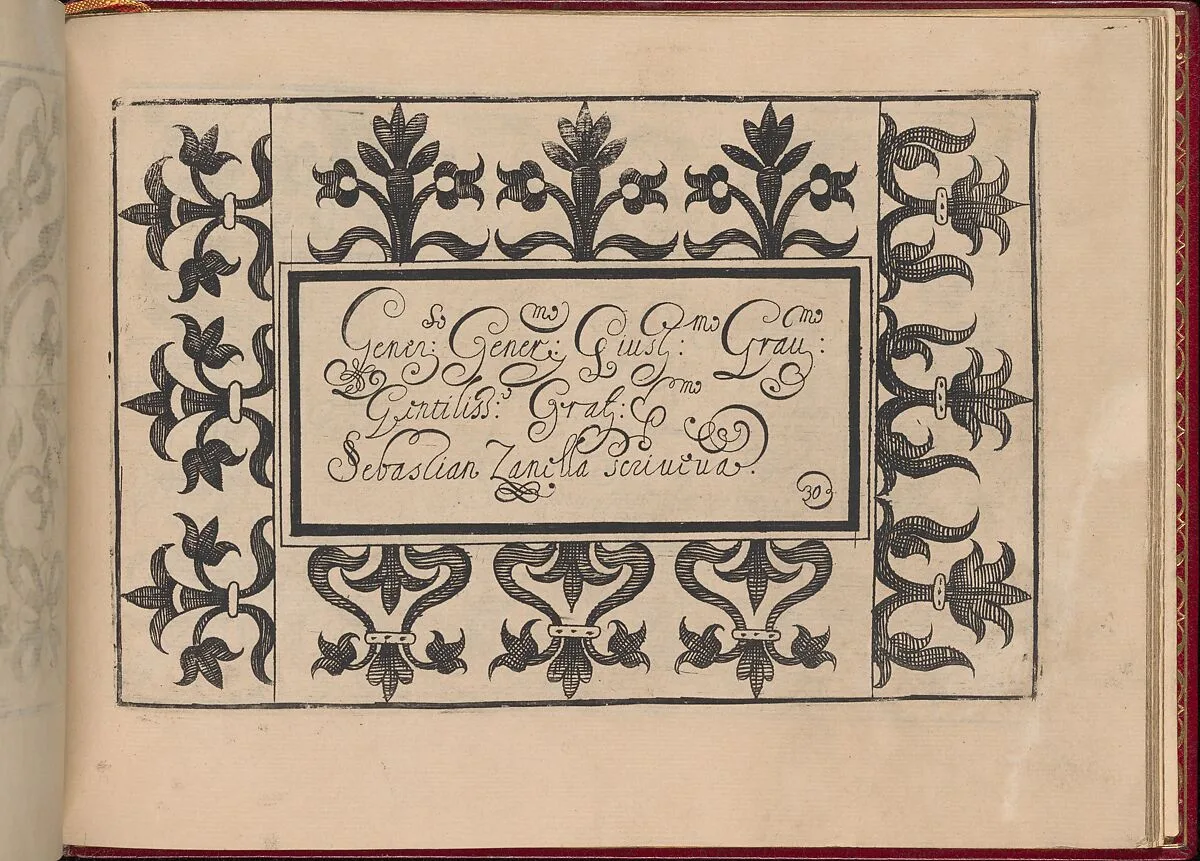 Gener: so Gener: mo Giust: mo Grau: mo
Gentiliss: o Grat: mo
Sebastian Zanella scriueua.
30